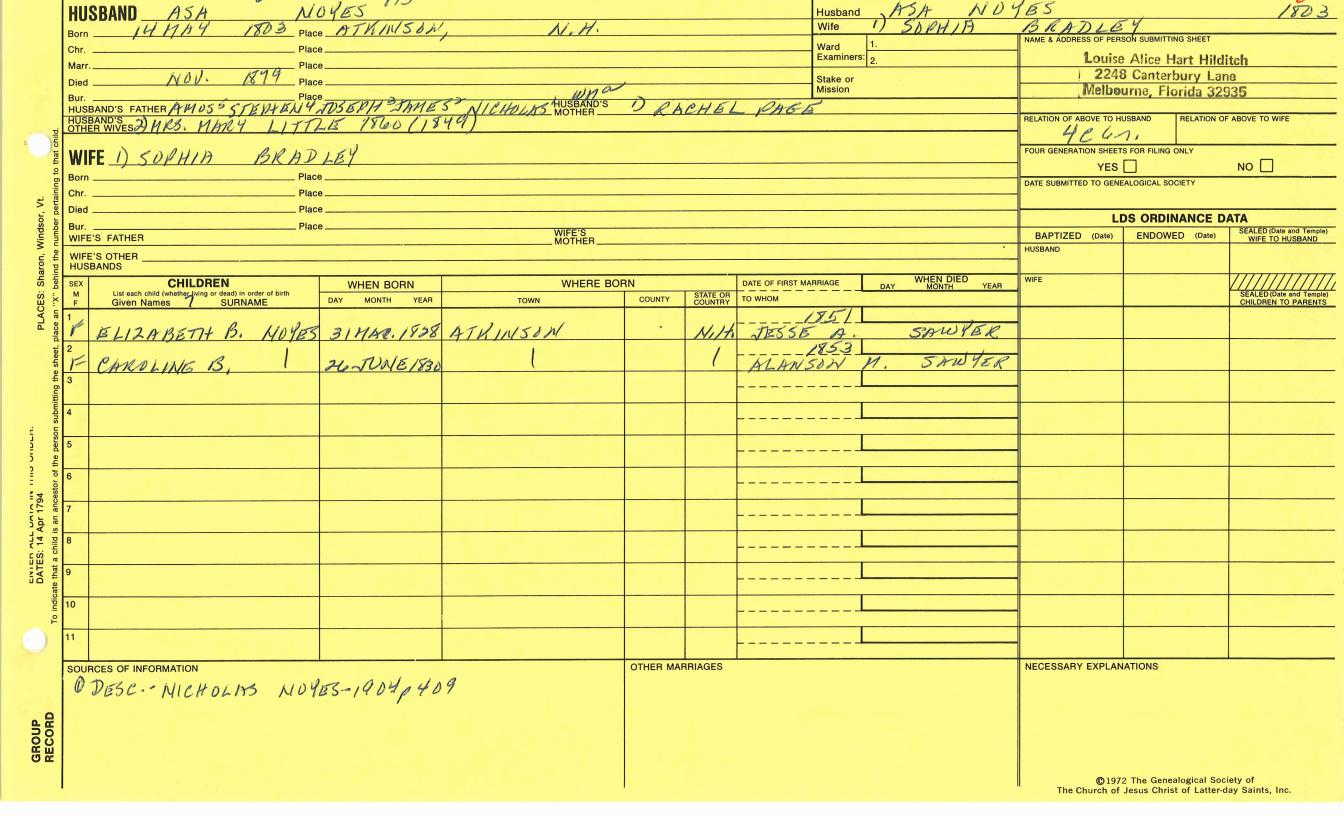 HUSBAND ASA NOYES
Born 14 MAY 1803 Place ATKINSON, N.H.
Chr. Place
Marr. Place
Died NOV. 1879 Place
Bur. Place
HUSBAND'S FATHER AMOS5 STEPHEN4 JOSEPH3 JAMES2 NICHOLAS1 HUSBAND'S MOTHER 1) RACHEL PAGE
HUSBAND'S OTHER WIVES 2) MRS. MARY LITTLE 1860 (1849)
WIFE 1) SOPHIA BRADLEY
Born Place
Chr. Place
Died Place
Bur. Place
WIFE'S FATHER WIFE'S MOTHER
WIFE'S OTHER HUSBANDS
Husband ASA NOYES 1803
Wife 1) SOPHIA BRADLEY
Ward Examiners: 1.
2.
Stake or Mission
NAME & ADDRESS OF PERSON SUBMITTING SHEET
Louise Alice Hart Hilditch
2248 Canterbury Lane
Melbourne, Florida 32935
RELATION OF ABOVE TO HUSBAND RELATION OF ABOVE TO WIFE
4c 6r.
FOUR GENERATION SHEETS FOR FILING ONLY
YES NO
DATE SUBMITTED TO GENEALOGICAL SOCIETY
LDS ORDINANCE DATA
BAPTIZED (Date) ENDOWED (Date) SEALED (Date and Temple) WIFE TO HUSBAND
HUSBAND
WIFE
SEALED (Date and Temple) CHILDREN TO PARENTS
SEX M F CHILDREN WHEN BORN WHERE BORN DATE OF FIRST MARRIAGE WHEN DIED
List each child (whether living or dead) in order of birth
Given Names SURNAME DAY MONTH YEAR TOWN COUNTY STATE OR COUNTRY TO WHOM DAY MONTH YEAR
1 1851
F ELIZABETH B. NOYES 31 MAR. 1828 ATKINSON N.H. JESSE A. SAWYER
2 1853
F CAROLINE B. 26 JUNE 1830 ALANSON M. SAWYER
3
4
5
6
7
8
9
10
11
SOURCES OF INFORMATION OTHER MARRIAGES NECESSARY EXPLANATIONS
① DESC.- NICHOLAS NOYES-1904 p 409
©1972 The Genealogical Society of
The Church of Jesus Christ of Latter-day Saints, Inc.
PLACES: Sharon, Windsor, Vt.
DATES: 14 Apr 1794
To indicate that a child is an ancestor of the person submitting the sheet, place an "X" behind the number pertaining to that child.
GROUP
RECORD